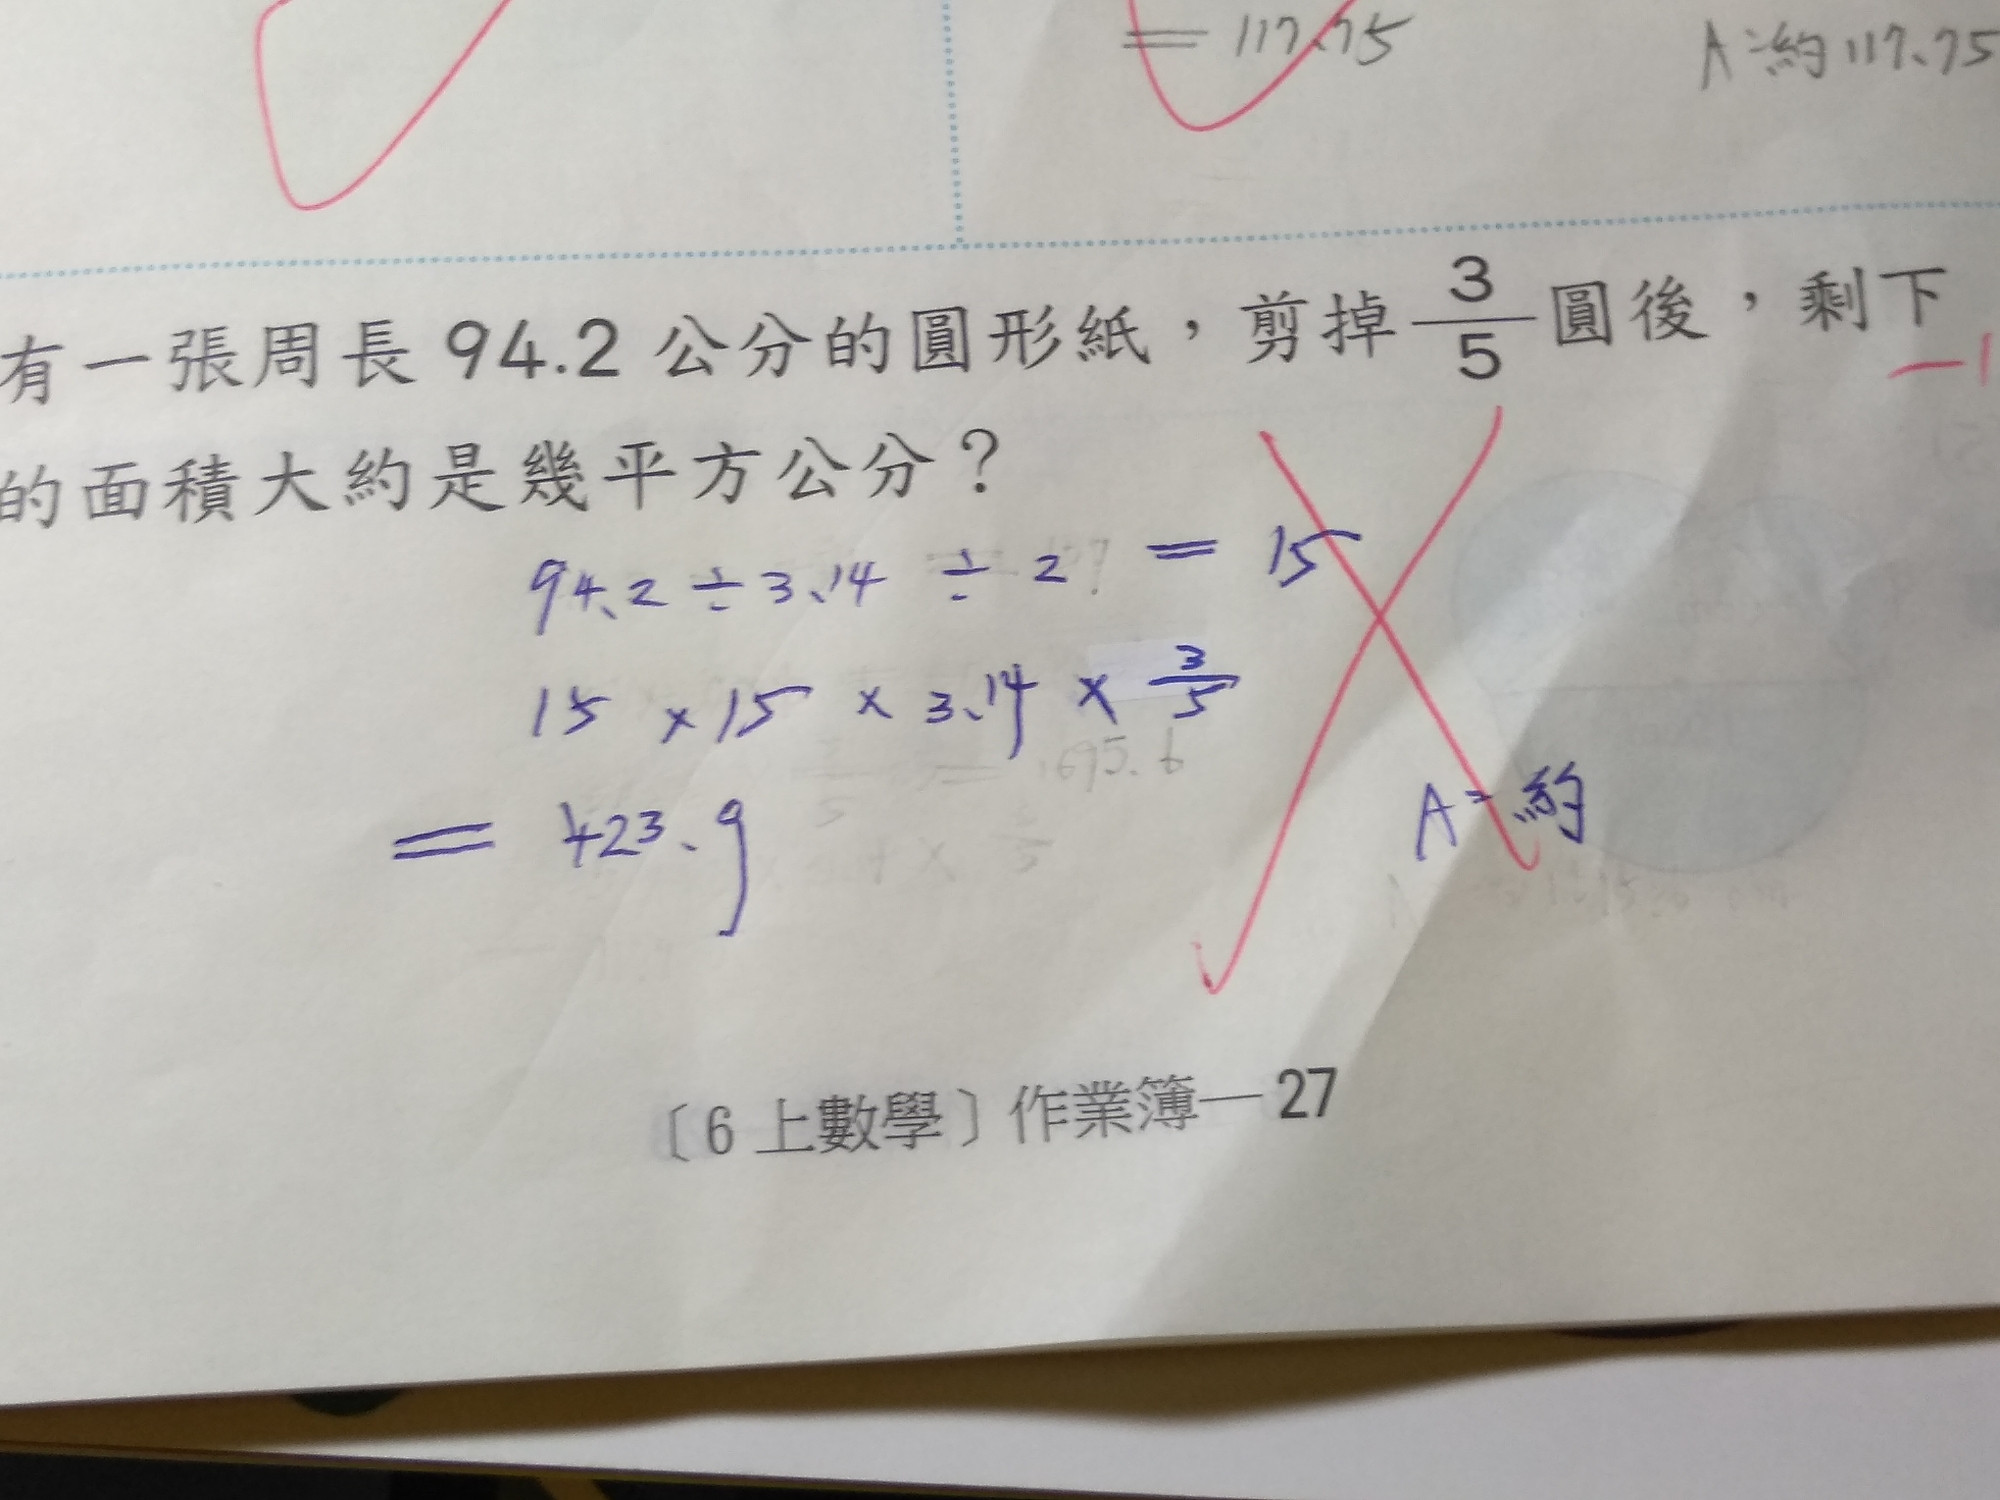 = 117.75
A:約117.75
有一張周長94.2公分的圓形紙，剪掉3/5圓後，剩下
-1
的面積大約是幾平方公分？
94.2÷3.14÷2=15
15×15×3.14×3/5
=423.9
A:約
〔6上數學〕作業簿—27